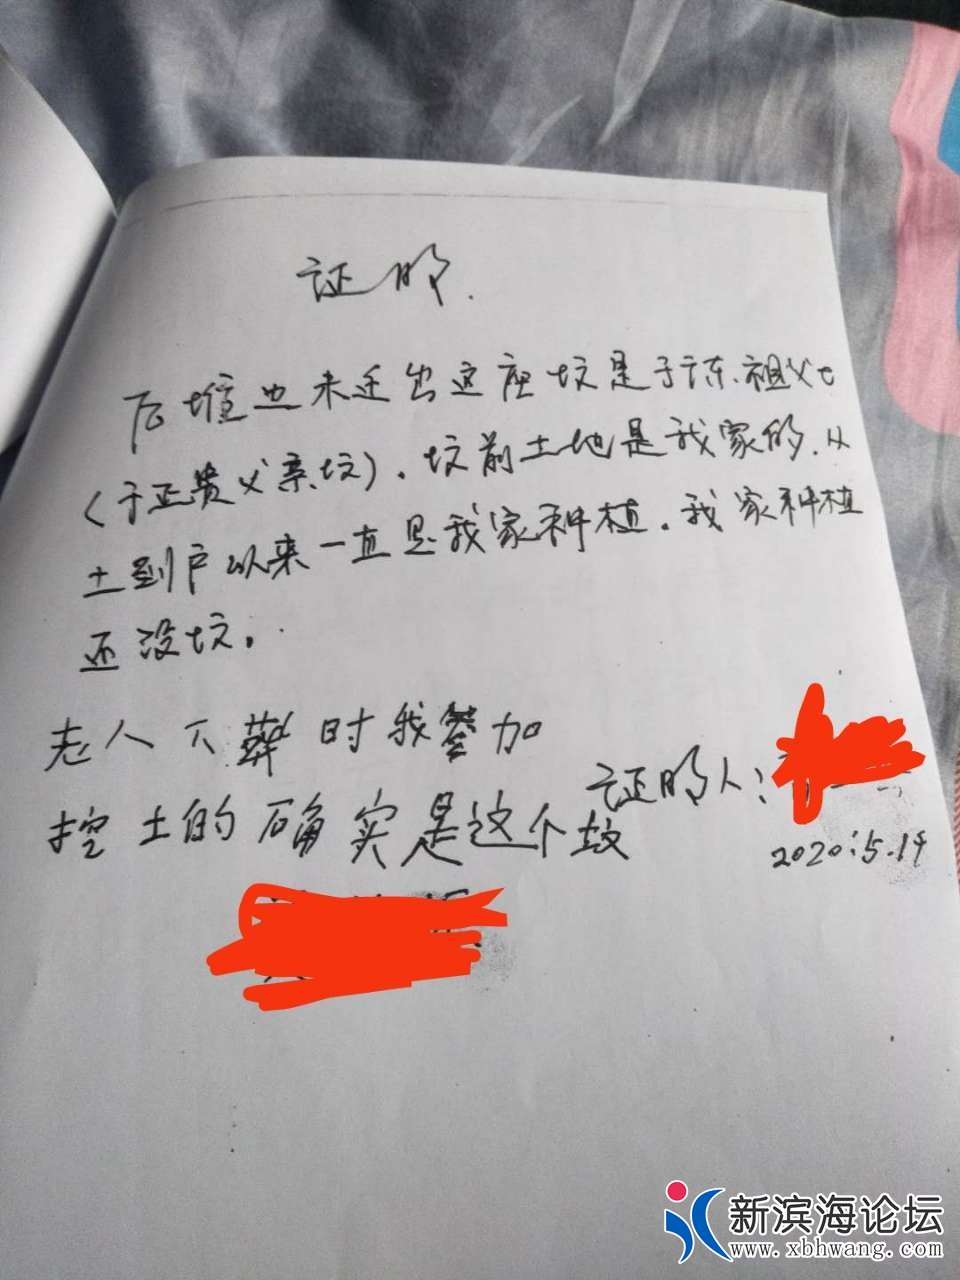 证明.
后堆也未迁出这座坟是于东.祖父也
(于正贵父亲坟).坟前土地是我家的.从
土到户以来一直是我家种植.我家种植
还没坟。
老人下葬时我参加
挖土的确实是这个坟
证明人:
2020.5.19
新滨海论坛
www.xbhwang.com